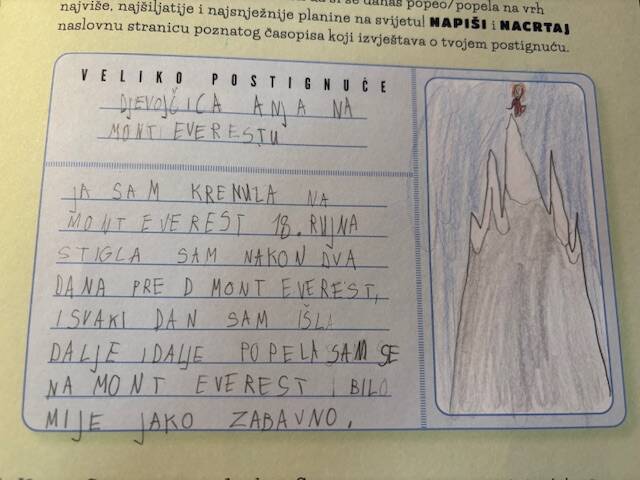 da si se danas popeo/popela na vrh
najviše, najšiljatije i najsnježnije planine na svijetu! NAPIŠI i NACRTAJ
naslovnu stranicu poznatog časopisa koji izvještava o tvojem postignuću.
VELIKO POSTIGNUĆE
DJEVOJČICA ANJA NA
MONT EVERESTU
JA SAM KRENULA NA
MONT EVEREST 18. RUJNA
STIGLA SAM NAKON DVA
DANA PRE D MONT EVEREST,
I SVAKI DAN SAM IŠLA
DALJE I DALJE POPELA SAM SE
NA MONT EVEREST I BILO
MIJE JAKO ZABAVNO.